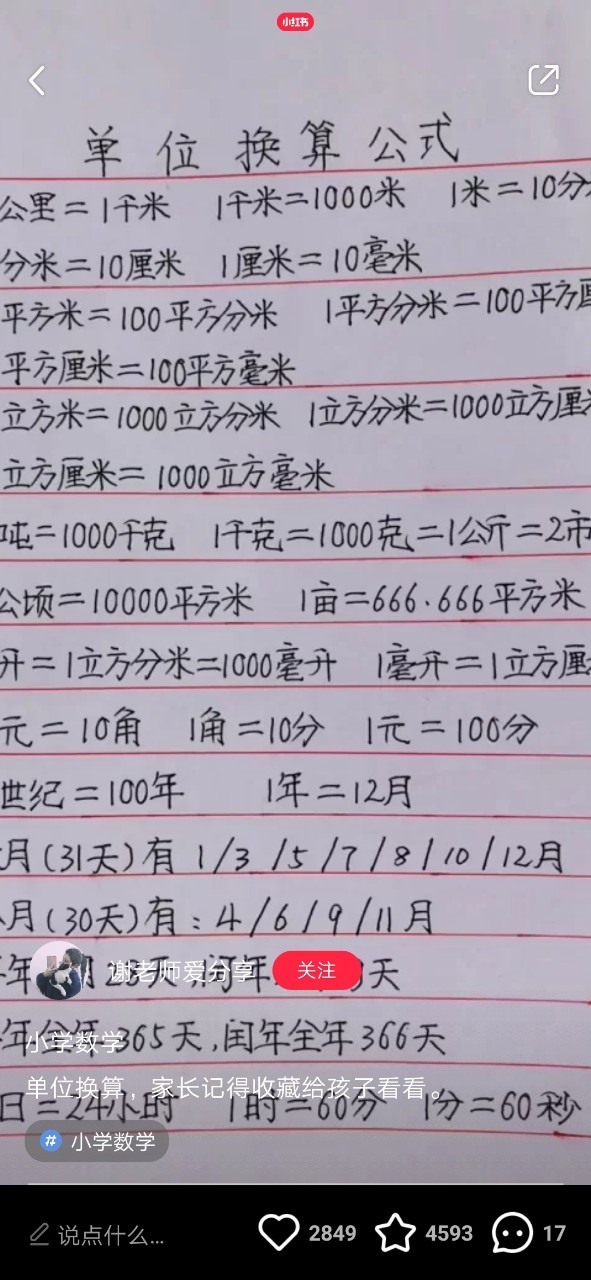 小红书
单位换算公式
公里=1千米 1千米=1000米 1米=10分
分米=10厘米 1厘米=10毫米
平方米=100平方分米 1平方分米=100平方厘
平方厘米=100平方毫米
立方米=1000立方分米 1立方分米=1000立方厘
立方厘米=1000立方毫米
吨=1000千克 1千克=1000克=1公斤=2市
公顷=10000平方米 1亩=666.666平方米
升=1立方分米=1000毫升 1毫升=1立方厘
元=10角 1角=10分 1元=100分
世纪=100年 1年=12月
月(31天)有 1/3/5/7/8/10/12月
月(30天)有:4/6/9/11月
年 月2 天 闰年 天
谢老师爱分享 关注
年全年365天,闰年全年366天
小学数学
单位换算,家长记得收藏给孩子看看。
日=24小时 1时=60分 1分=60秒
# 小学数学
说点什么... 2849 4593 17